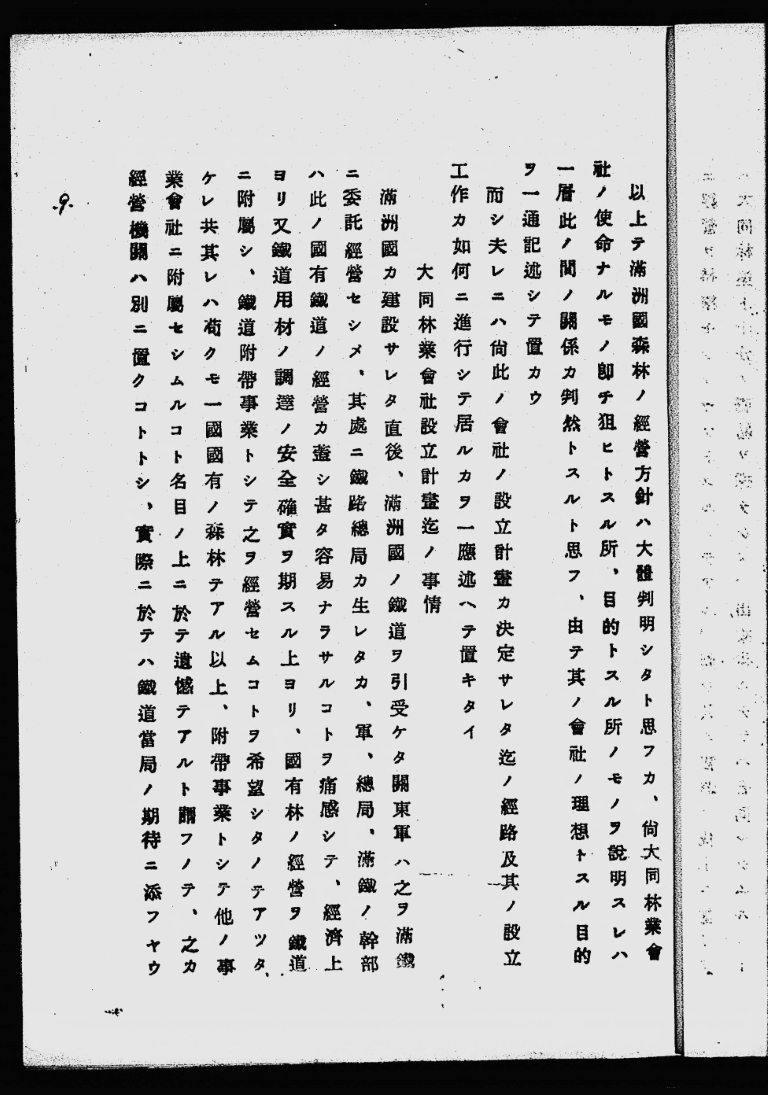 以上テ滿洲國森林ノ經營方針ハ大體判明シタト思フカ、尙大同林業會
社ノ使命ナルモノ卽チ狙ヒトスル所、目的トスル所ノモノヲ說明スレハ
一層此ノ間ノ關係カ判然トスルト思フ、由テ其ノ會社ノ理想トスル目的
ヲ一通記述シテ置カウ
而シ夫レニハ尙此ノ會社ノ設立計畫カ決定サレタ迄ノ經路及其ノ設立
工作カ如何ニ進行シテ居ルカヲ一應述ヘテ置キタイ
大同林業會社設立計畫迄ノ事情
滿洲國カ建設サレタ直後、滿洲國ノ鐵道ヲ引受ケタ關東軍ハ之ヲ滿鐵
ニ委託經營セシメ、其處ニ鐵路總局カ生レタカ、軍、總局、滿鐵ノ幹部
ハ此ノ國有鐵道ノ經營カ蓋シ甚タ容易ナラサルコトヲ痛感シテ、經濟上
ヨリ又鐵道用材ノ調達ノ安全確實ヲ期スル上ヨリ、國有林ノ經營ヲ鐵道
ニ附屬シ、鐵道附帶事業トシテ之ヲ經營セムコトヲ希望シタノテアツタ
ケレ共其レハ苟クモ一國國有ノ森林テアル以上、附帶事業トシテ他ノ事
業會社ニ附屬セシムルコト名目ノ上ニ於テ遺憾テアルト謂フノテ、之カ
經營機關ハ別ニ置クコトトシ、實際ニ於テハ鐵道當局ノ期待ニ添フヤウ
.9.